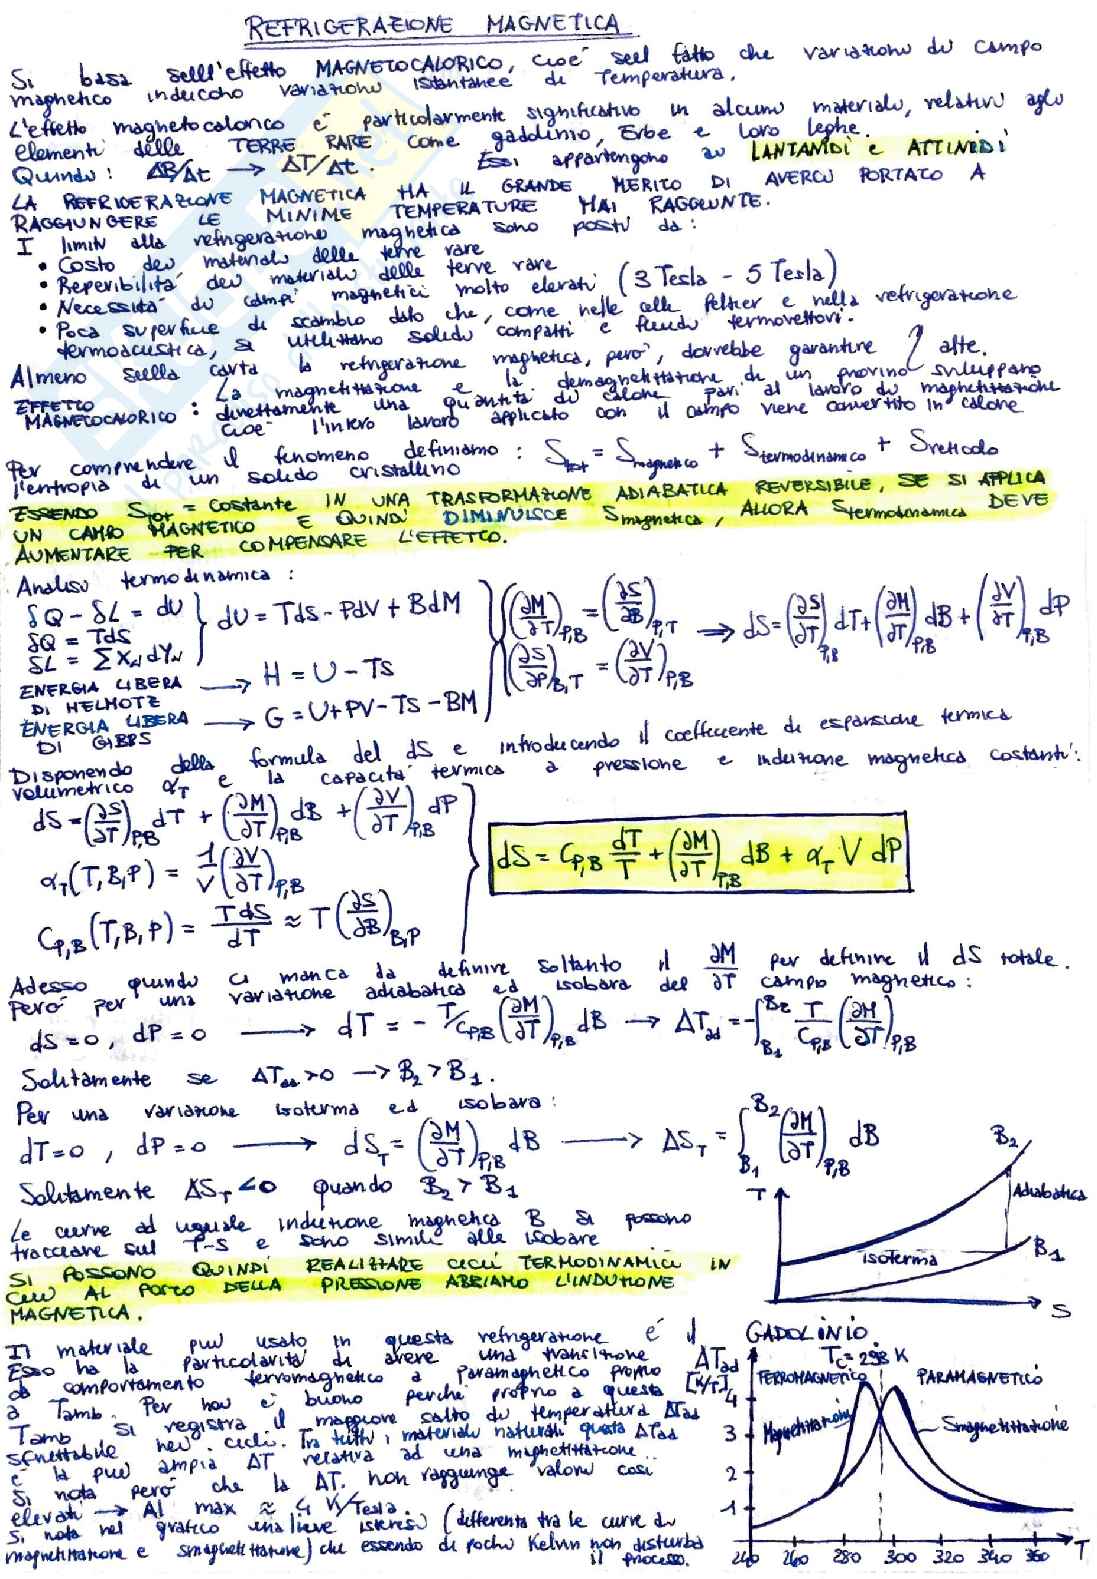 REFRIGERAZIONE MAGNETICA
Si basa sull'effetto MAGNETOCALORICO, cioé sul fatto che variazioni di campo
magnetico inducono variazioni istantanee di Temperatura.
L'effetto magnetocalorico é particolarmente significativo in alcuni materiali, relativi agli
elementi delle TERRE RARE come gadolinio, Erbe e loro leghe.
Quindi: ΔB/Δt → ΔT/Δt. Essi appartengono ai LANTANIDI e ATTINIDI
LA REFRIGERAZIONE MAGNETICA HA IL GRANDE MERITO DI AVERCI PORTATO A
RAGGIUNGERE LE MINIME TEMPERATURE MAI RAGGIUNTE.
I limiti alla refrigerazione magnetica sono posti da:
• Costo dei materiali delle terre rare
• Reperibilitá dei materiali delle terre rare
• Necessitá di campi magnetici molto elevati (3 Tesla - 5 Tesla)
• Poca superficie di scambio dato che, come nelle celle Peltier e nella refrigerazione
termoacustica, si utilizzano solidi compatti e fluidi termovettori.
Almeno sulla carta la refrigerazione magnetica, peró, dovrebbe garantire η alte.
EFFETTO MAGNETOCALORICO : La magnetizzazione e la demagnetizzazione di un provino sviluppano
direttamente una quantitá di calore pari al lavoro di magnetizzazione
cioé l'intero lavoro applicato con il campo viene convertito in calore
Per comprendere il fenomeno definiamo : Stot = Smagnetico + Stermodinamico + Sreticolo
l'entropia di un solido cristallino
ESSENDO Stot = costante IN UNA TRASFORMAZIONE ADIABATICA REVERSIBILE, SE SI APPLICA
UN CAMPO MAGNETICO E QUINDI DIMINUISCE Smagnetica, ALLORA Stermodinamica DEVE
AUMENTARE PER COMPENSARE L'EFFETTO.
Analisi termodinamica :
δQ - δL = dU
δQ = TdS
δL = ∑ XN dYN
dU = TdS - PdV + BdM
(∂M/∂T)P,B = (∂S/∂B)P,T
(∂S/∂P)B,T = (∂V/∂T)P,B
⇒ dS = (∂S/∂T)P,B dT + (∂M/∂T)P,B dB + (∂V/∂T)P,B dP
ENERGIA LIBERA DI HELMOTZ → H = U - TS
ENERGIA LIBERA DI GIBBS → G = U + PV - TS - BM
Disponendo della formula del dS e introducendo il coefficiente di espansione termica
volumetrico αT e la capacitá termica a pressione e induzione magnetica costanti:
dS = (∂S/∂T)P,B dT + (∂M/∂T)P,B dB + (∂V/∂T)P,B dP
αT(T,B,P) = 1/V (∂V/∂T)P,B
CP,B(T,B,P) = TdS/dT ≈ T(∂S/∂B)B,P
dS = CP,B dT/T + (∂M/∂T)P,B dB + αT V dP
Adesso quindi ci manca da definire soltanto il ∂M/∂T per definire il dS totale.
Peró per una variazione adiabatica ed isobara del campo magnetico :
dS = 0, dP = 0 → dT = - T/CP,B (∂M/∂T)P,B dB → ΔTad = -∫B1 B2 T/CP,B (∂M/∂T)P,B
Solitamente se ΔTad > 0 → B2 > B1.
Per una variazione isoterma ed isobara :
dT = 0, dP = 0 → dST = (∂M/∂T)P,B dB → ΔST = ∫B1 B2 (∂M/∂T)P,B dB
Solitamente ΔST < 0 quando B2 > B1
Le curve ad uguale induzione magnetica B si possono
tracciare sul T-S e sono simili alle isobare
SI POSSONO QUINDI REALIZZARE CICLI TERMODINAMICI IN
CUI AL POSTO DELLA PRESSIONE ABBIAMO L'INDUZIONE
MAGNETICA.
T
B2
Adiabatica
isoterma
B1
S
Il materiale piú usato in questa refrigerazione é il GADOLINIO.
Esso ha la particolaritá di avere una transizione
da comportamento ferromagnetico a paramagnetico proprio
a Tamb. Per noi é buono perché proprio a questa
Tamb si registra il maggiore salto di temperatura ΔTad
sfruttabile nei cicli. Tra tutti i materiali naturali questa ΔTad
é la piú ampia ΔT relativa ad una magnetizzazione
Si nota peró che la ΔT non raggiunge valori cosí
elevati → Al max ≈ 4 K/Tesla.
Si nota nel grafico una lieve isteresi (differenza tra le curve di
magnetizzazione e smagnetizzazione) che essendo di pochi Kelvin non disturba
il processo.
ΔTad
[K/T]
TC = 298 K
FERROMAGNETICO
PARAMAGNETICO
Magnetizzazione
Smagnetizzazione
4
3
2
1
240 260 280 300 320 340 360 T